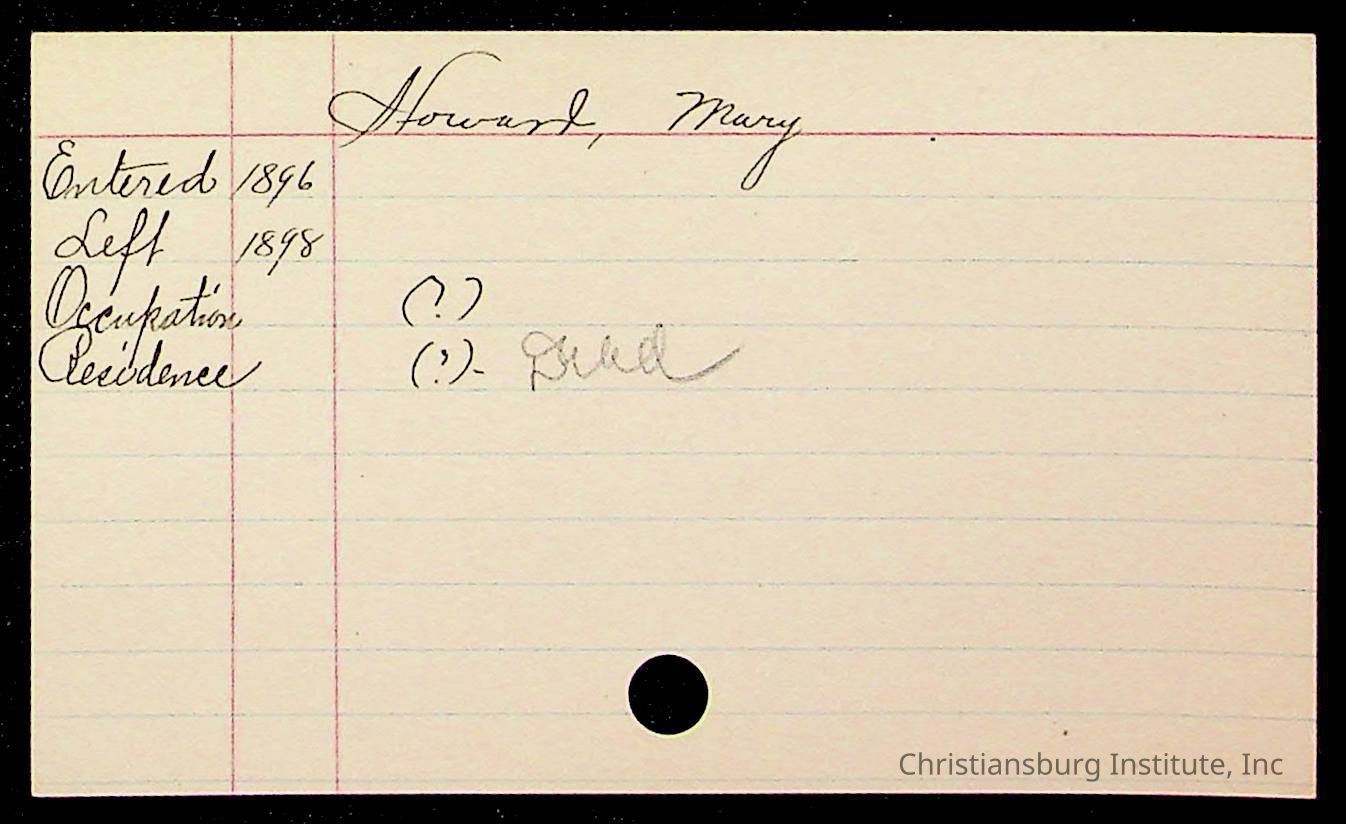 Howard, Mary
Entered 1896
Left 1898
Occupation (?)
Residence (?)- Dead
Christiansburg Institute, Inc